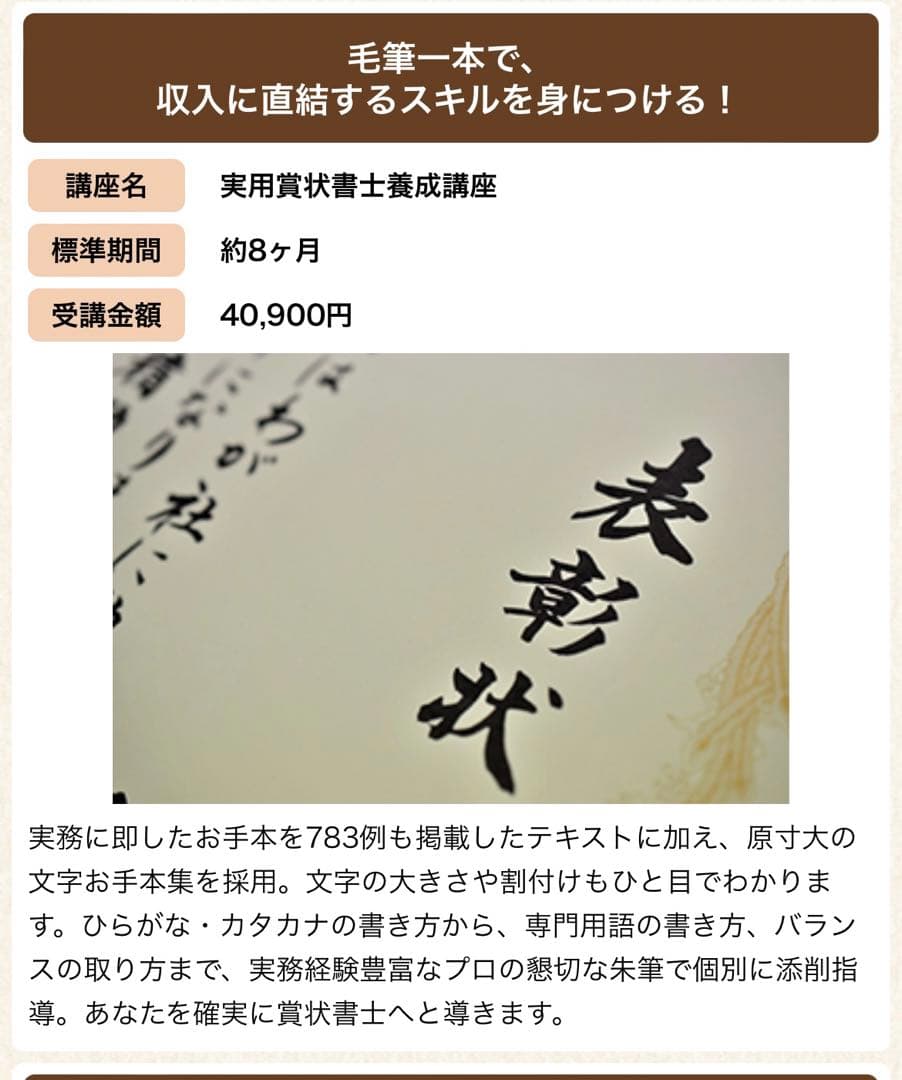 毛筆一本で、
収入に直結するスキルを身につける！
講座名 実用賞状書士養成講座
標準期間 約8ヶ月
受講金額 40,900円
表彰状
は
わが
社に
実務に即したお手本を783例も掲載したテキストに加え、原寸大の
文字お手本集を採用。文字の大きさや割付けもひと目でわかりま
す。ひらがな・カタカナの書き方から、専門用語の書き方、バラン
スの取り方まで、実務経験豊富なプロの懇切な朱筆で個別に添削指
導。あなたを確実に賞状書士へと導きます。